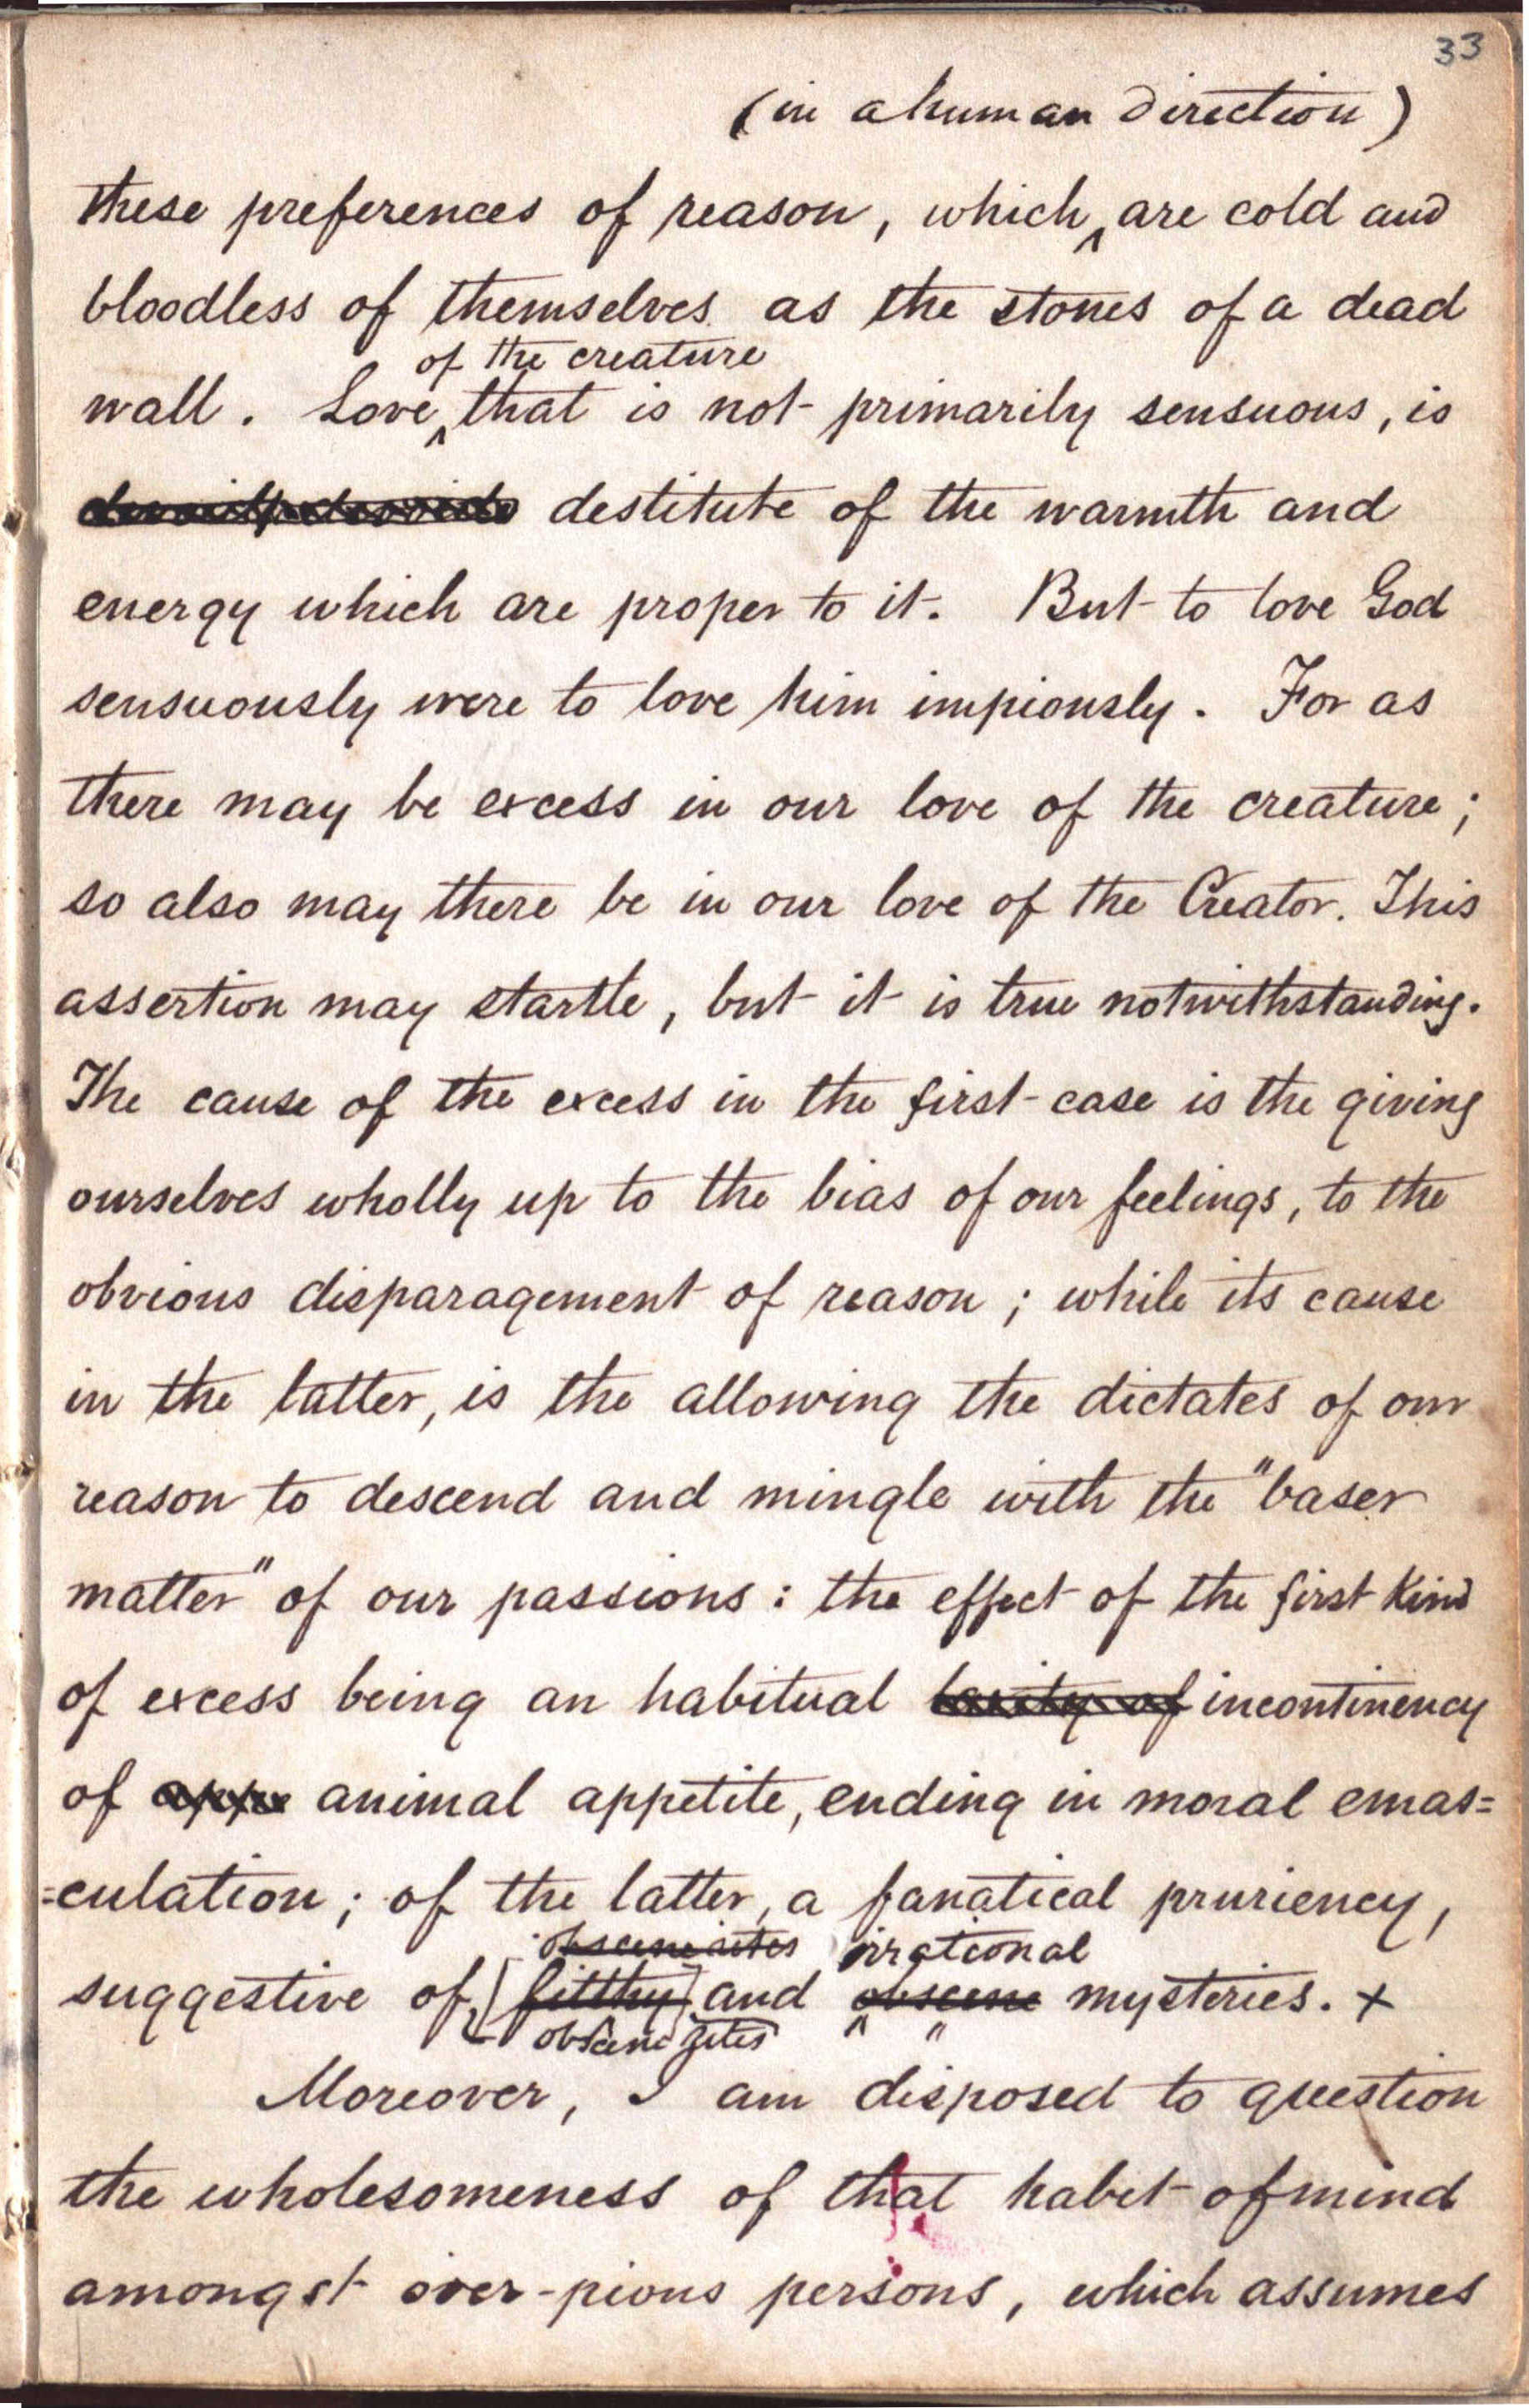 33
(in a human direction)
these preferences of reason, which ^ are cold and
bloodless of themselves as the stones of a dead
of the creature
wall. Love ^ that is not primarily sensuous, is
destitute of the warmth and
energy which are proper to it. But to love God
sensuously were to love him impiously. For as
there may be excess in our love of the creature;
so also may there be in our love of the Creator. This
assertion may startle, but it is true notwithstanding.
The cause of the excess in the first case is the giving
ourselves wholly up to the bias of our feelings, to the
obvious disparagement of reason; while its cause
in the latter, is the allowing the dictates of our
reason to descend and mingle with the "baser
matter" of our passions: the effect of the first kind
of excess being an habitual laxity of incontinency
of appe animal appetite, ending in moral emas=
=culation; of the latter, a fanatical pruriency,
obscene rites irrational
suggestive of [filthy] and ^ obscene mysteries. +
obscene rites "
Moreover, I am disposed to question
the wholesomeness of that habit of mind
amongst over-pious persons, which assumes